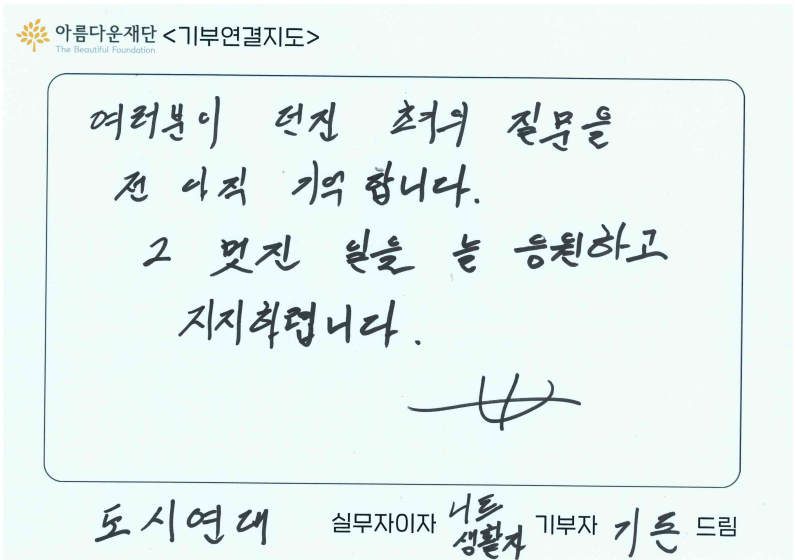 아름다운재단 <기부연결지도>
The Beautiful Foundation
여러분이 던진 최저의 질문을
전 아직 기억 합니다.
그 멋진 일을 늘 응원하고
지지하렵니다.
도시연대 실무자이자 니트 생활자 기부자 기돈 드림